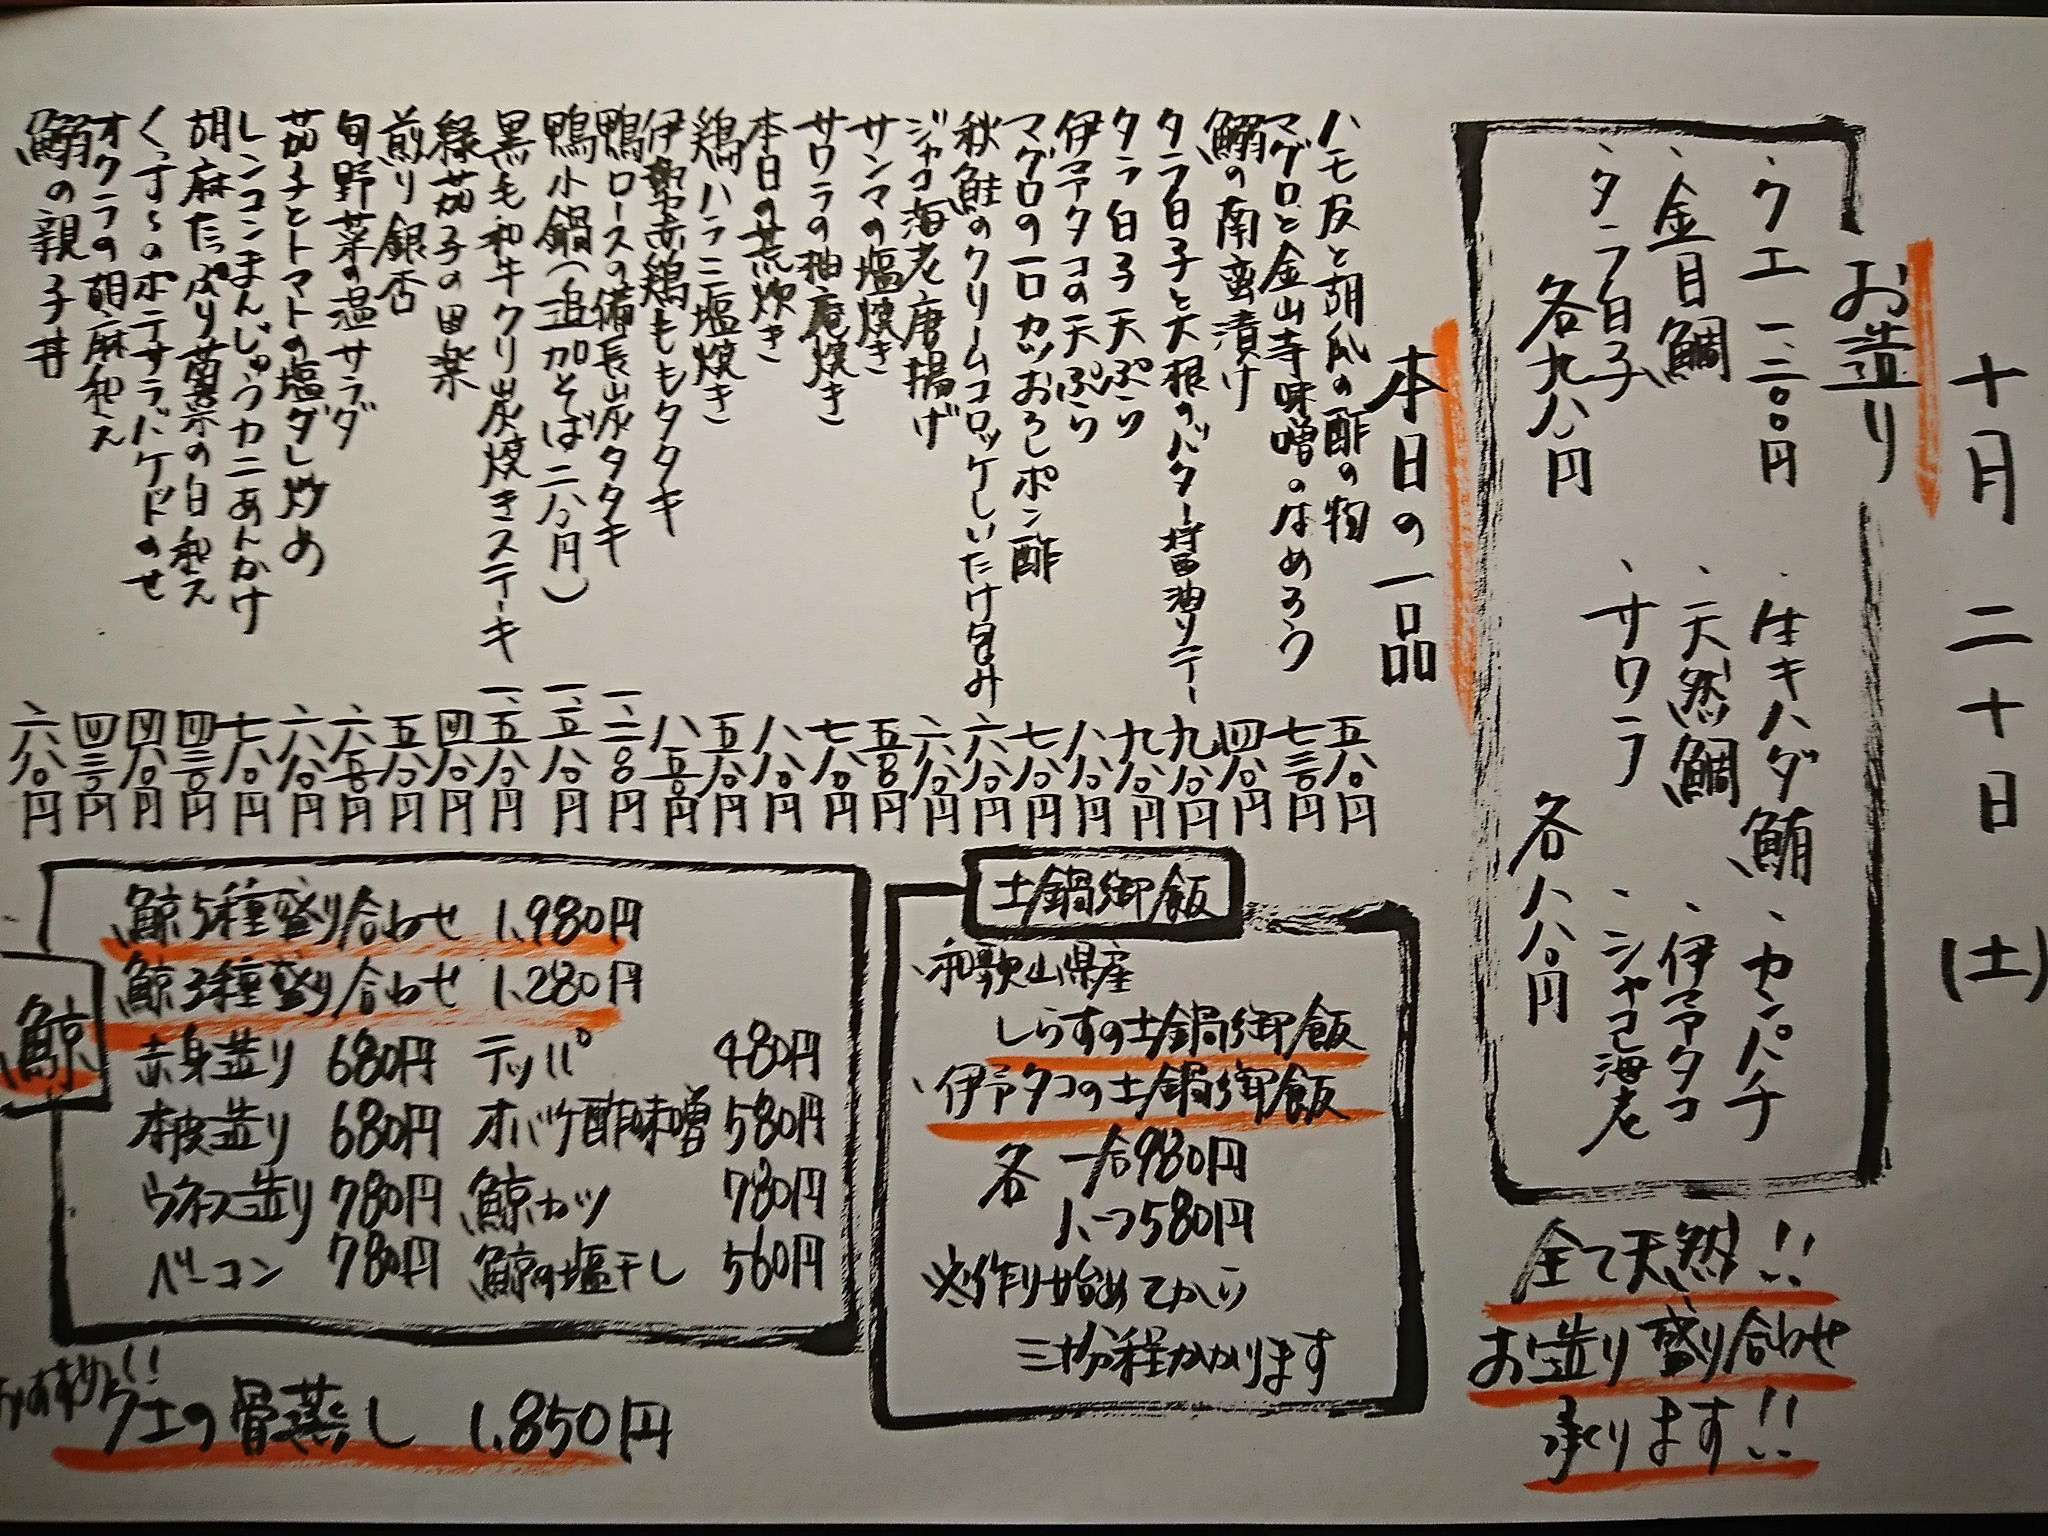 十月二十日(土)
お造り
・クエ 一、二〇〇円
・金目鯛
・タラ白子
各九八〇円
・生キハダ鮪
・カンパチ
・天然鯛
・伊予タコ
・サワラ
・シャコ海老
各八八〇円
全て天然!!
お造り盛り合わせ
承ります!!
本日の一品
ハモ皮と胡瓜の酢の物 五八〇円
マグロと金山寺味噌のなめろう 七三〇円
鰯の南蛮漬け 四八〇円
タラ白子と大根のバター醤油ソテー 九八〇円
タラ白子天ぷら 九八〇円
伊予タコの天ぷら 八八〇円
マグロの一口カツおろしポン酢 七八〇円
秋鮭のクリームコロッケしいたけ包み 六八〇円
ジャコ海老唐揚げ 六八〇円
サンマの塩焼き 五五〇円
サワラの柚庵焼き 七八〇円
本日の荒炊き 八八〇円
鶏ハラミ塩焼き 五八〇円
伊勢赤鶏ももタタキ 八五〇円
鴨ロースの備長炭タタキ 一、二八〇円
鴨小鍋(追加そば二八〇円) 一、五八〇円
黒毛和牛クリ炭焼きステーキ 一、五八〇円
緑茄子の田楽 四八〇円
煎り銀杏 五八〇円
旬野菜の温サラダ 六八〇円
茄子とトマトの塩ダレ炒め 六八〇円
レンコンまんじゅうカニあんかけ 七八〇円
胡麻たっぷり菊菜の白和え 四三〇円
くっすーのポテサラバケドのせ 四八〇円
オクラの胡麻和え 四三〇円
鰯の親子丼 六八〇円
土鍋御飯
・和歌山県産
しらすの土鍋御飯
・伊予タコの土鍋御飯
各 一合980円
ハーフ580円
※作り始めてから
三十分程かかります
鯨
鯨5種盛り合わせ 1,980円
鯨3種盛り合わせ 1,280円
赤身造り 680円 テッパ 480円
本皮造り 680円 オバケ酢味噌 580円
ウネス造り 780円 鯨カツ 780円
ベーコン 780円 鯨の塩干し 560円
おすすめ!!
クエの骨蒸し 1,850円